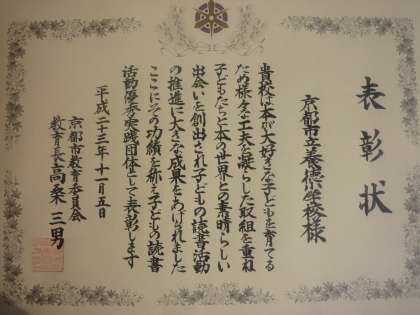 表彰状
京都市立養徳小学校様
貴校は本が大好きな子どもを育てる
ため様々な工夫を凝らした取組を重ね
子どもたちと本の世界との素晴らしい
出会いを創出され子どもの読書活動
の推進に大きな成果をあげられました
ここにその功績を称え子どもの読書
活動優秀実践団体として表彰します
平成二十三年十一月五日
京都市教育委員会
教育長高桑三男